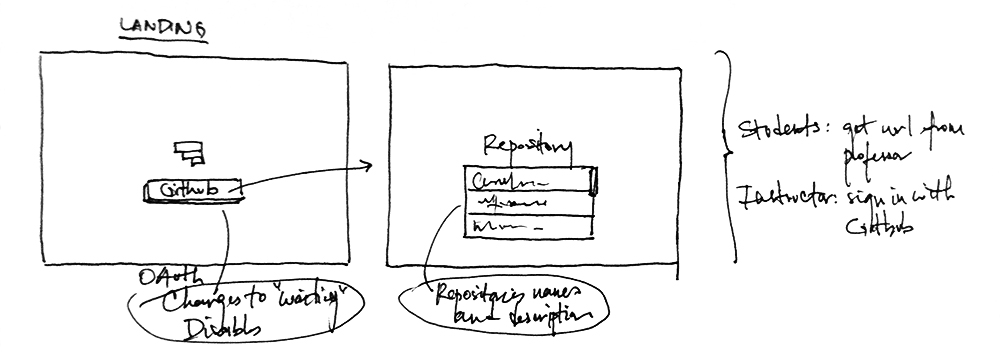 LANDING
Github
OAuth
Changes to "waiting"
Disables
Repository
Repository names
and description
Students: get url from
professor
Instructor: sign in with
Github